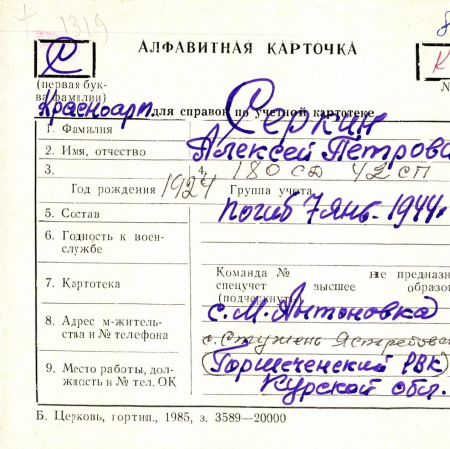 1319
С
АЛФАВИТНАЯ КАРТОЧКА
К
(первая бук-
ва фамилии)
№
Красноарм. для справок по учетной картотеке
1. Фамилия Серкин
2. Имя, отчество Алексей Петрови
3. 4. 180 сд 42 сп
Год рождения 1924 Группа учета
5. Состав погиб 7 янв. 1944г.
6. Годность к воен-
службе
Команда № не предназн
7. Картотека спецучет высшее образо
(подчеркнуть)
с. М. Антоновка
8. Адрес м-житель-
ства и № телефона с. Стужень Ястребовс
Горшеченский РВК
9. Место работы, дол-
жность и № тел. ОК Курской обл.
Б. Церковь, гортип., 1985, з. 3589—20000